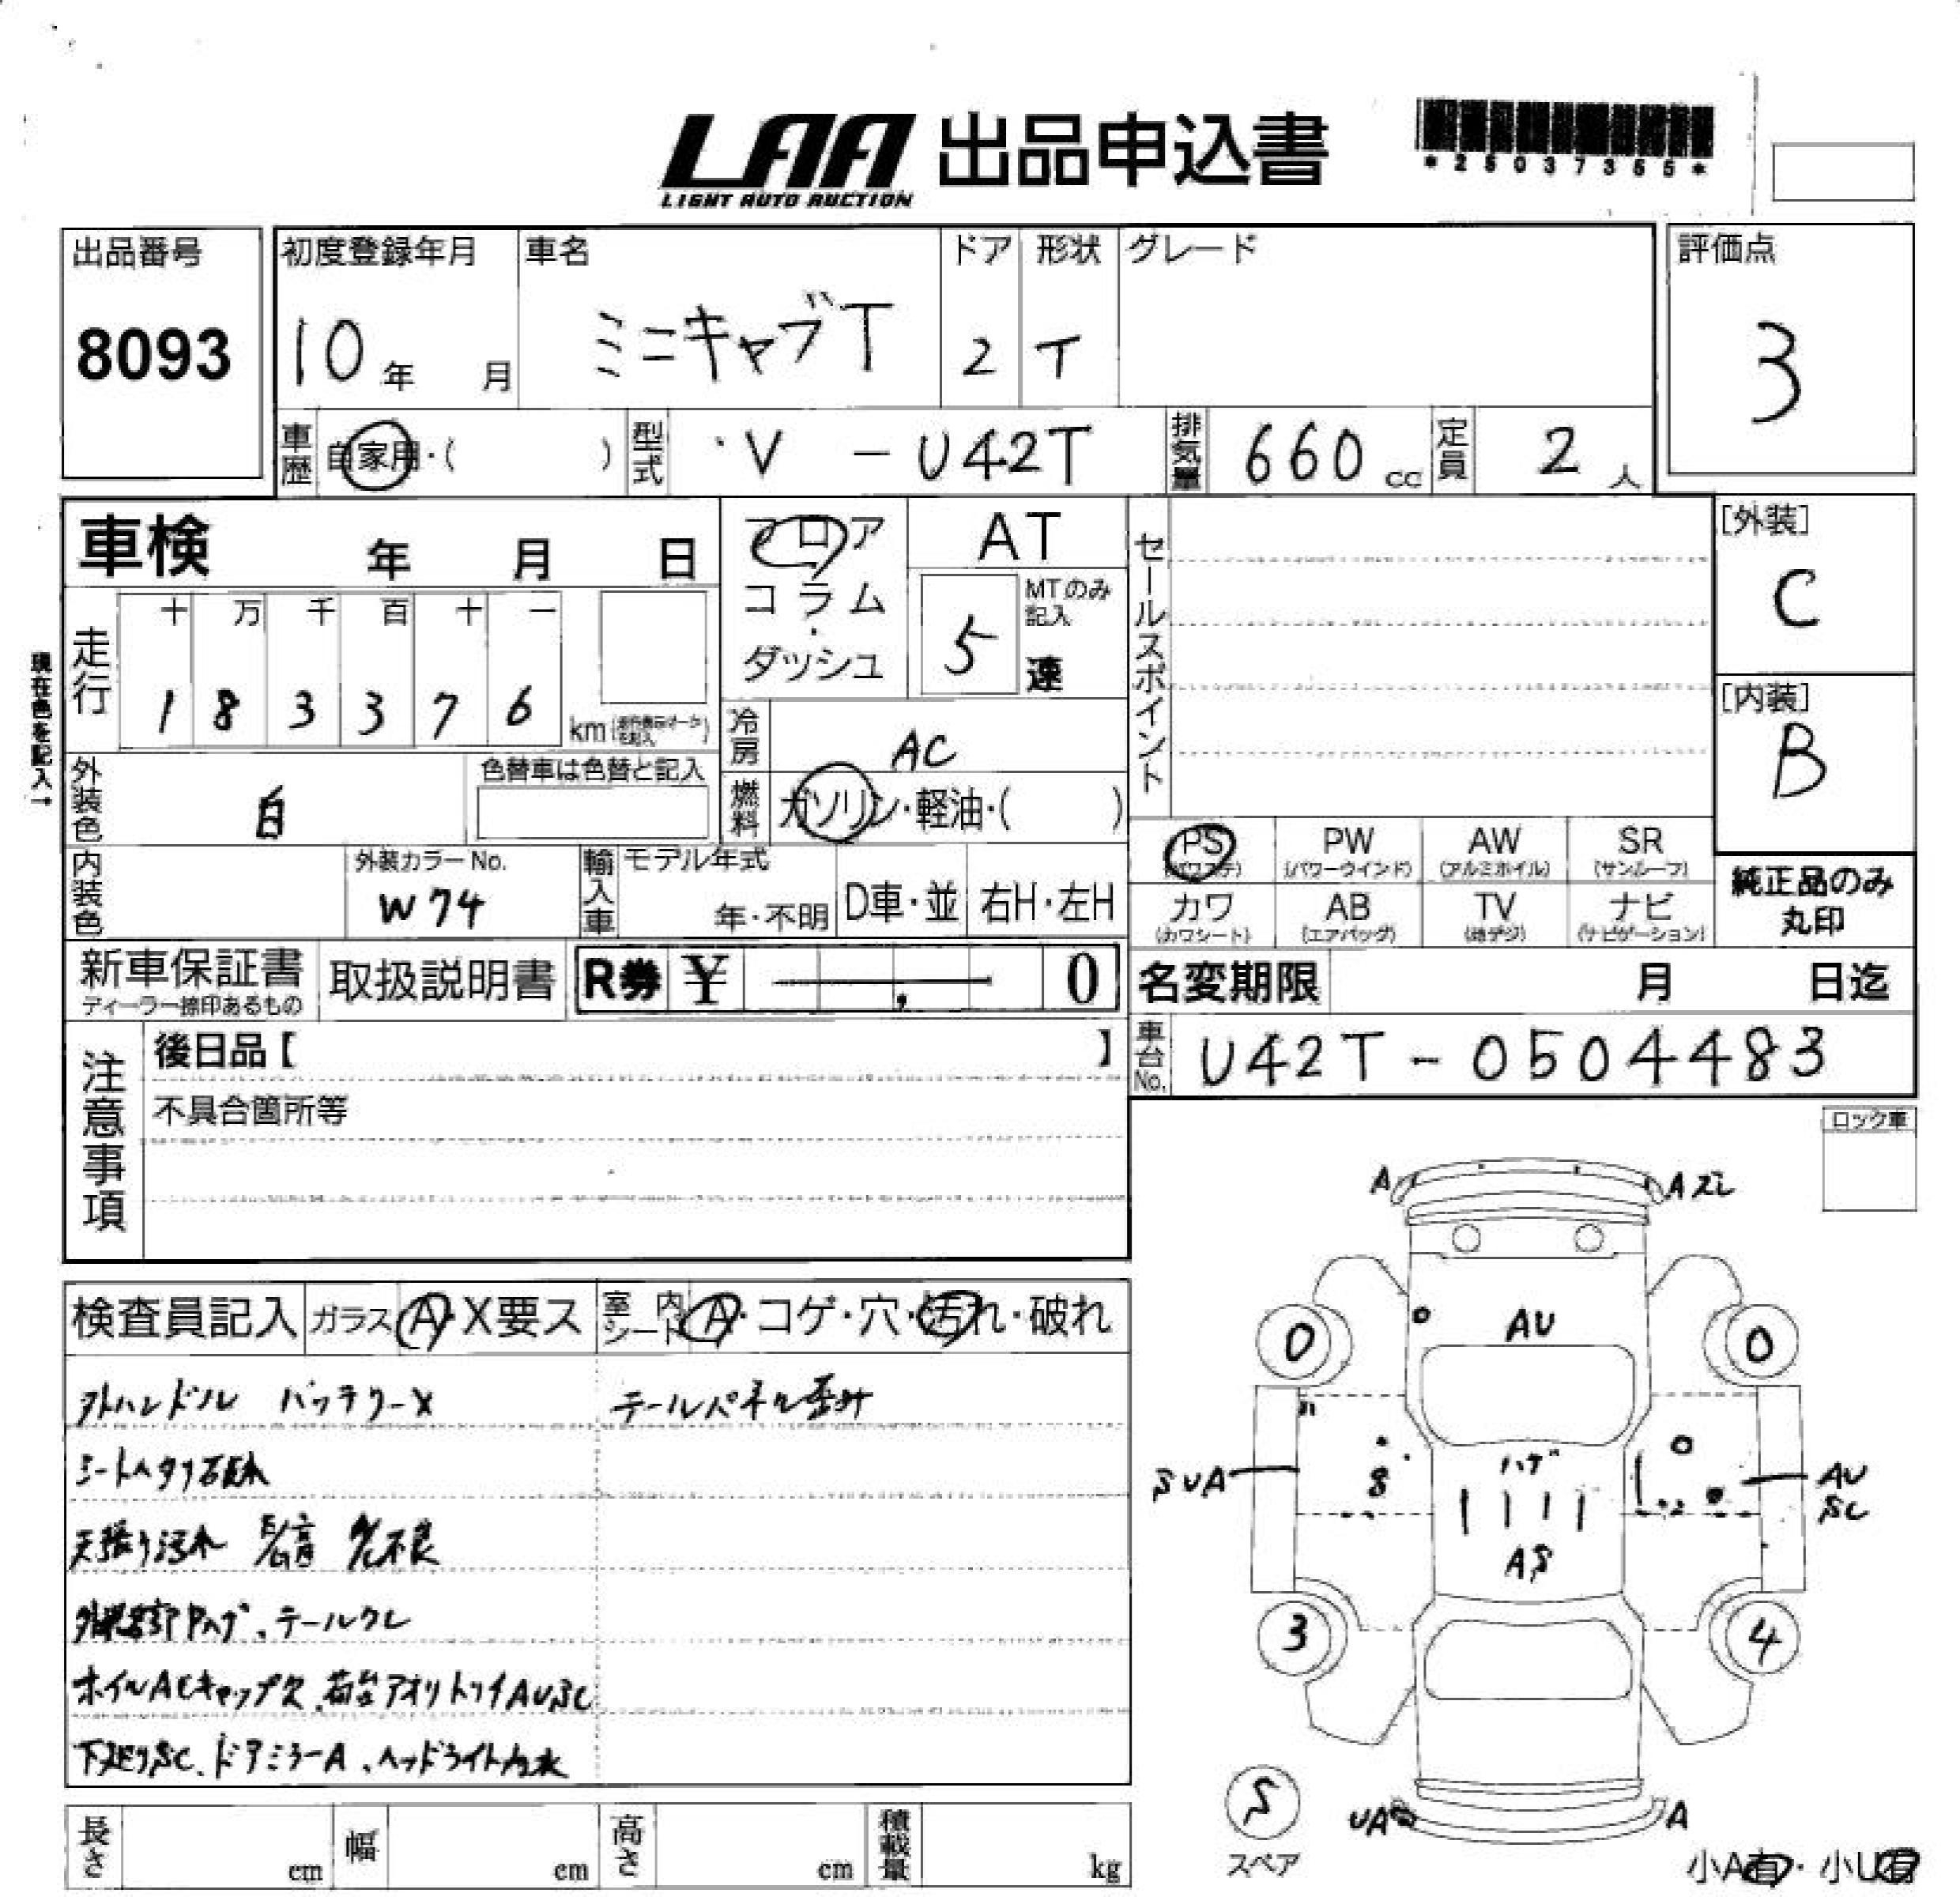 LAA 出品申込書
LIGHT AUTO AUCTION
出品番号 初度登録年月 車名 ドア 形状 グレード 評価点
8093 10年 月 ミニキャブT 2 T 3
車歴 自家用・( ) 型式 V - U42T 排気量 660 cc 定員 2 人
車検 年 月 日 フロア AT [外装]
コラム・ダッシュ 5 MTのみ記入 速 C
セールスポイント
走行 十 万 千 百 十 一
1 8 3 3 7 6 km
現在色を記入→
冷房 AC [内装]
外装色 白 色替車は色替と記入 燃料 ガソリン・軽油・( ) B
PS (パワステ) PW (パワーウインド) AW (アルミホイル) SR (サンルーフ)
内装色 外装カラーNo. W74 輸入車 モデル年式 年・不明 D車・並 右H・左H
カワ (カワシート) AB (エアバッグ) TV (地デジ) ナビ (ナビゲーション)
純正品のみ
丸印
新車保証書 取扱説明書 R券 ¥ 0 名変期限 月 日迄
ディーラー捺印あるもの
車台No. U42T-0504483
注意事項 後日品【 】
不具合箇所等
ロック車
検査員記入 ガラス A・X要ス 室内シート A・コゲ・穴・汚れ・破れ
外ハンドル バッテリーX テールパネル歪み
シートヘタリ破れ
天張り汚れ
テールワレ
ホイルACキャップ欠、荷台アオリトリイAUSC
下廻りSC、ドアミラーA、ヘッドライト内水
A A ズレ
AU
0 0
SUA 8 ハゲ AU
SC
AS
3 4
S
スペア
UA A
小A有・小U有
長さ cm 幅 cm 高さ cm 積載量 kg